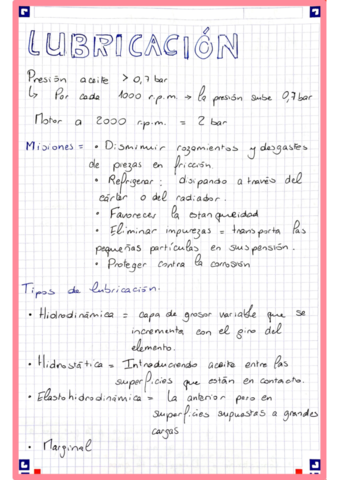 LUBRICACIÓN
Presión aceite > 0,7 bar
↳ Por cada 1000 r.p.m. → la presión sube 0,7 bar
Motor a 2000 r.p.m. = 2 bar
Misiones = • Disminuir rozamientos y desgastes
de piezas en fricción.
• Refrigerar: disipando a través del
cárter o del radiador.
• Favorecer la estanqueidad
• Eliminar impurezas = transporta las
pequeñas partículas en suspensión.
• Proteger contra la corrosión
Tipos de lubricación.
• Hidrodinámica = capa de grosor variable que se
incrementa con el giro del
elemento.
• Hidrostática = Introduciendo aceite entre las
superficies que están en contacto.
• Elastohidrodinámica = La anterior pero en
superficies supuestas a grandes
cargas
• Marginal